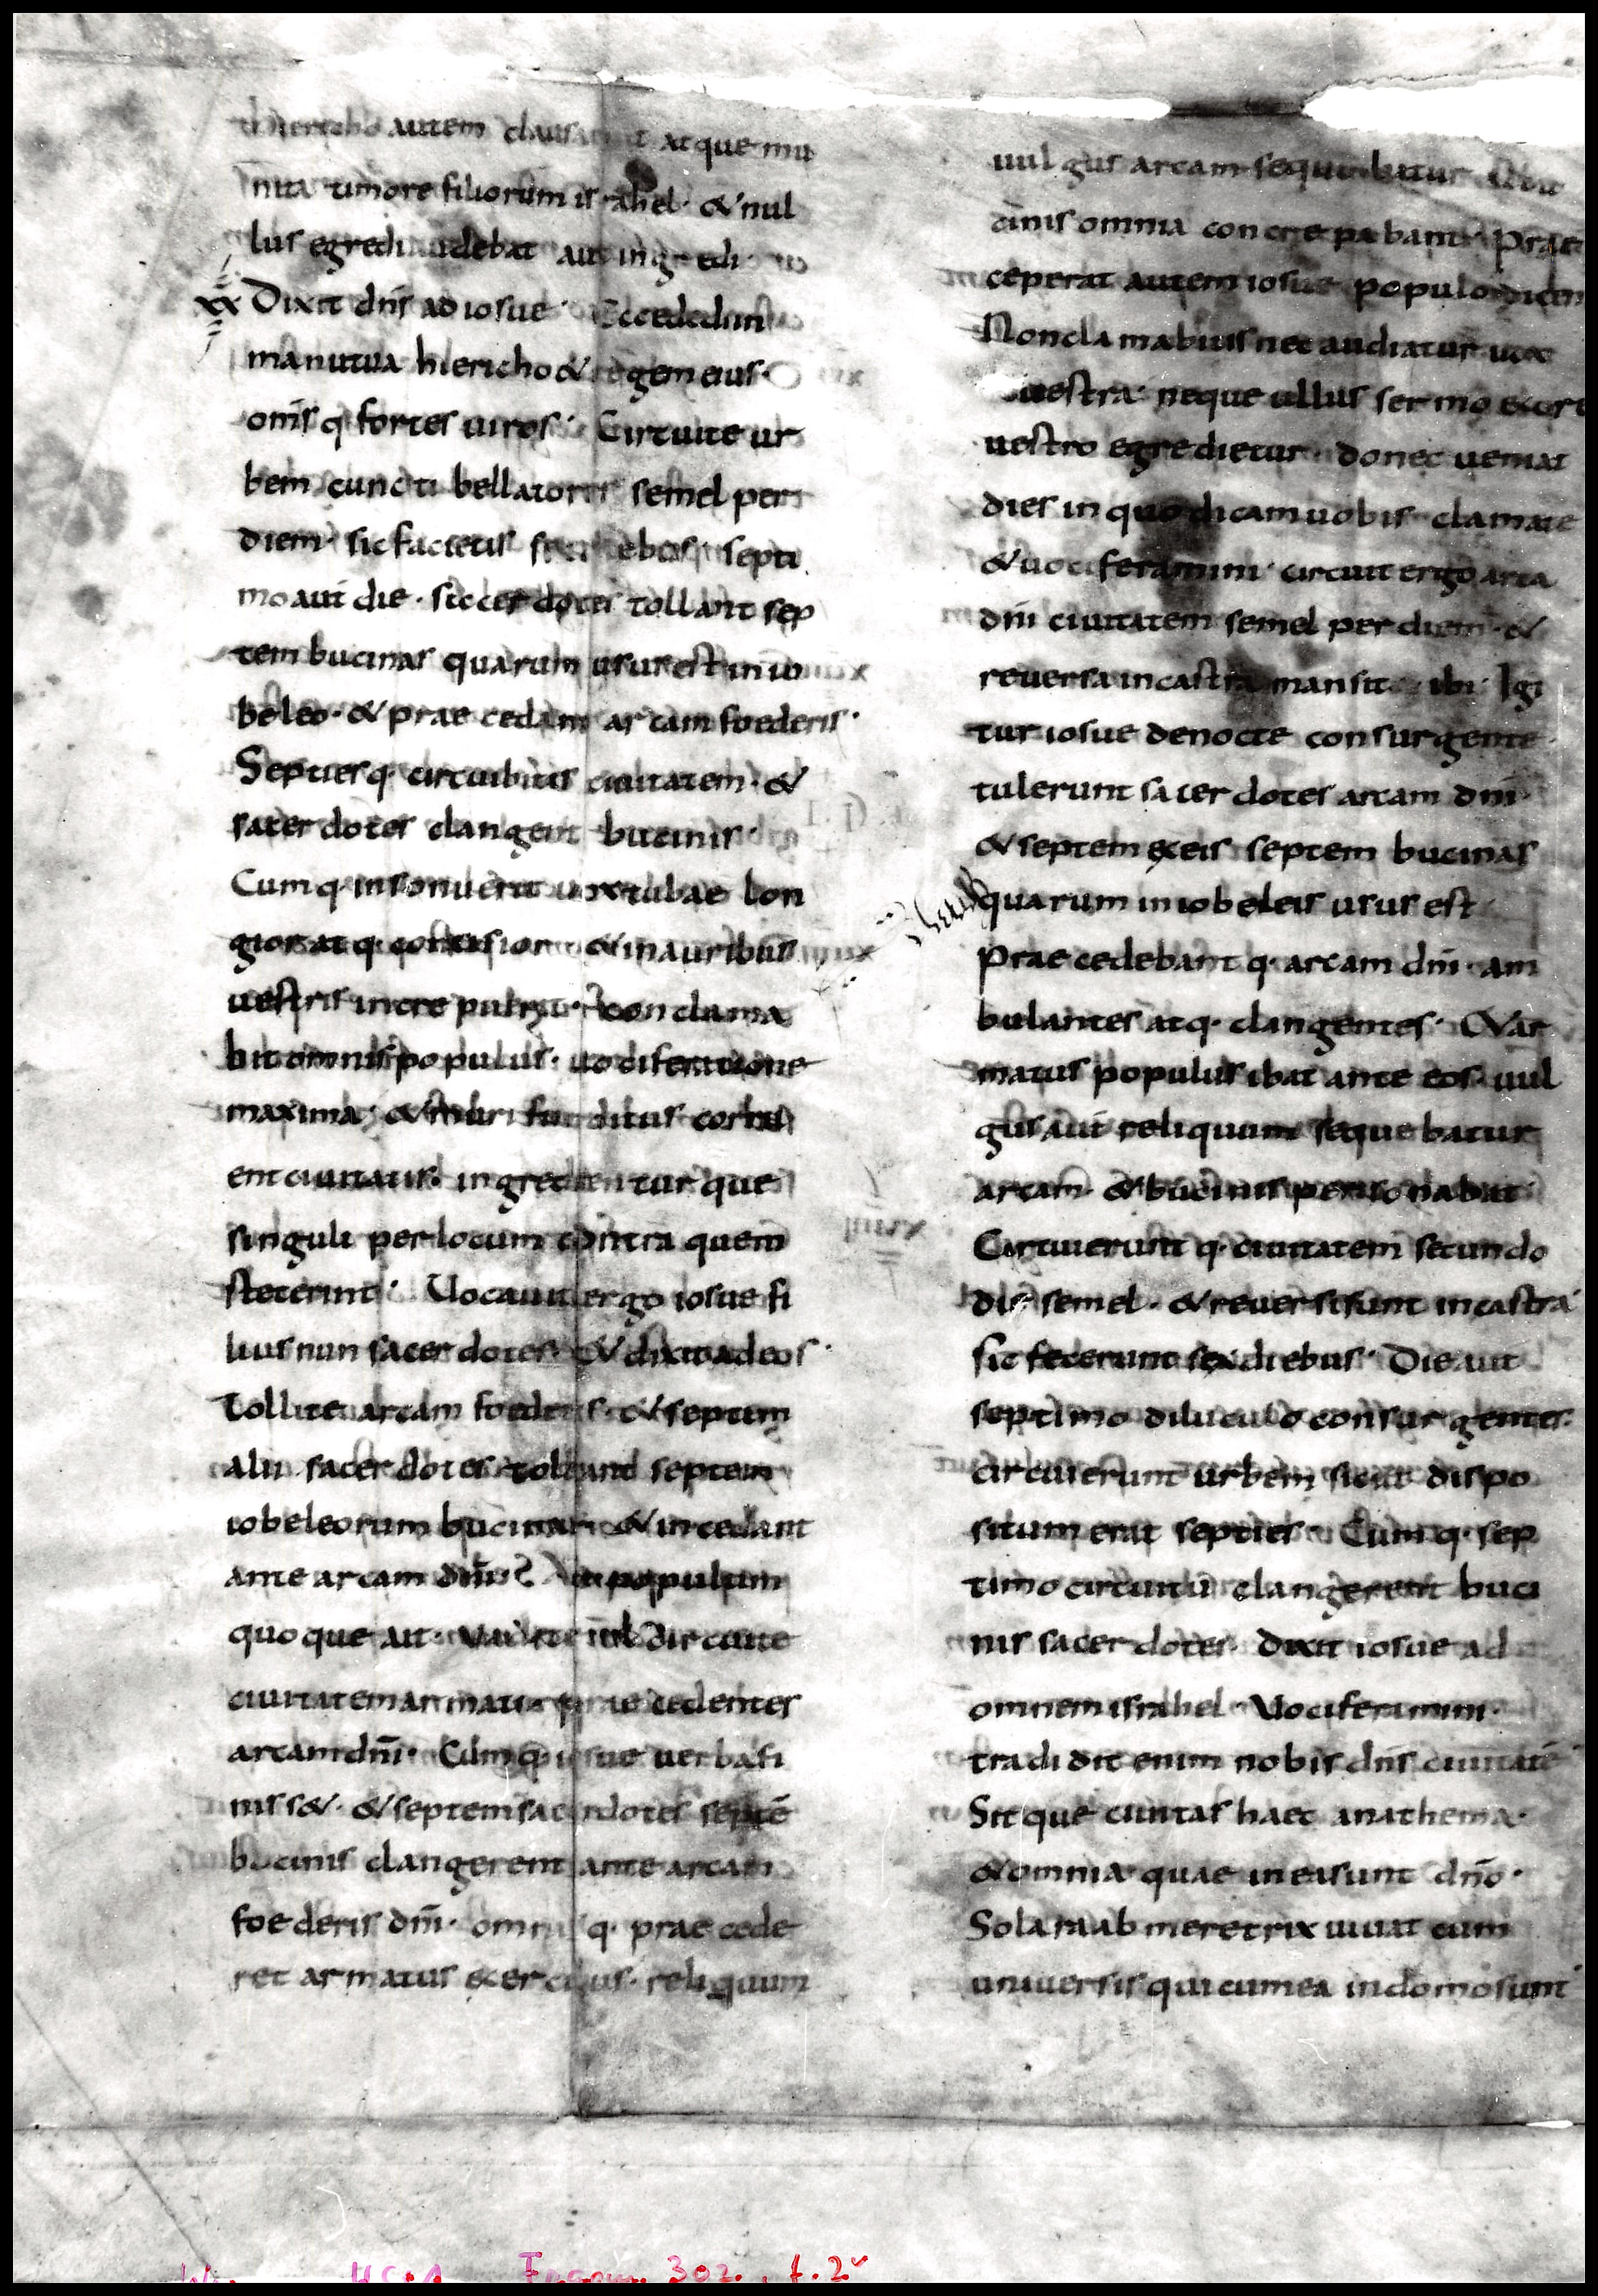 hiericho autem clausa erat atque mu
nita timore filiorum israhel· & nul
lus egredi audebat aut ingredi
xx Dixit dns ad iosue Ecce dedi in
manu tua hiericho & regem eius·
omsq· fortes uiros· Circuite ur
bem cuncti bellatores semel per
diem· sic facietis sex diebus· septi
mo aut die· sacerdotes tollant sep
tem bucinas quarum usus est in io
beleo· & praecedant arcam foederis·
Septiesq· circuibitis ciuitatem· &
sacerdotes clangent bucinis·
Cumq· insonuerit uox tubae lon
gior atq· concisior & in auribus
uestris increpuerit· conclama
bit omnis populus· uociferatione
maxima· & muri funditus corru
ent ciuitatis· ingredienturque
singuli per locum contra quem
steterint· Uocauit ergo iosue fi
lius nun sacerdotes· & dixit ad eos·
Tollite arcam foederis· & septem
alii sacerdotes tollant septem
iobeleorum bucinas & incedant
ante arcam dni· Ad populum
quoque ait· Uadite & circuite
ciuitatem armati praecedentes
arcam dni· Cumq· iosue uerba fi
niss&· & septem sacerdotes septē
bucinis clangerent ante arcam
foederis dni· omnisq· praecede
ret armatus exercitus· reliquum
uulgus arcam sequebatur Ac bu
cinis omnia concrepabant· Prae
ceperat autem iosue populo dicens
Non clamabitis nec audiatur uox
uestra· neque ullus sermo ex ore
uestro egredietur· donec ueniat
dies in quo dicam uobis· clamate
& uociferamini· circuit ergo arca
dni ciuitatem semel per diem· &
reuersa in castra mansit ibi· Igi
tur iosue de nocte consurgente
tulerunt sacerdotes arcam dni·
& septem ex eis septem bucinas
quarum in iobeleis usus est
Praecedebantq· arcam dni· am
bulantes atq· clangentes· & ar
matus populus ibat ante eos· uul
gus aut reliquum sequebatur
arcam· & bucinis personabat·
Circuieruntq· ciuitatem secundo
die semel· & reuersi sunt in castra·
sic fecerunt sex diebus· Die aut
septimo diluculo consurgentes·
circuierunt urbem sicut dispo
situm erat septies· Cumq· sep
timo circuitu clangerent buci
nis sacerdotes dixit iosue ad
omnem israhel· Uociferamini·
tradidit enim nobis dns ciuitatē
Sitque ciuitas haec anathema·
& omnia quae in ea sunt dno·
Sola raab meretrix uiuat cum
uniuersis qui cum ea in domo sunt
Fragm. 302. , f. 2v